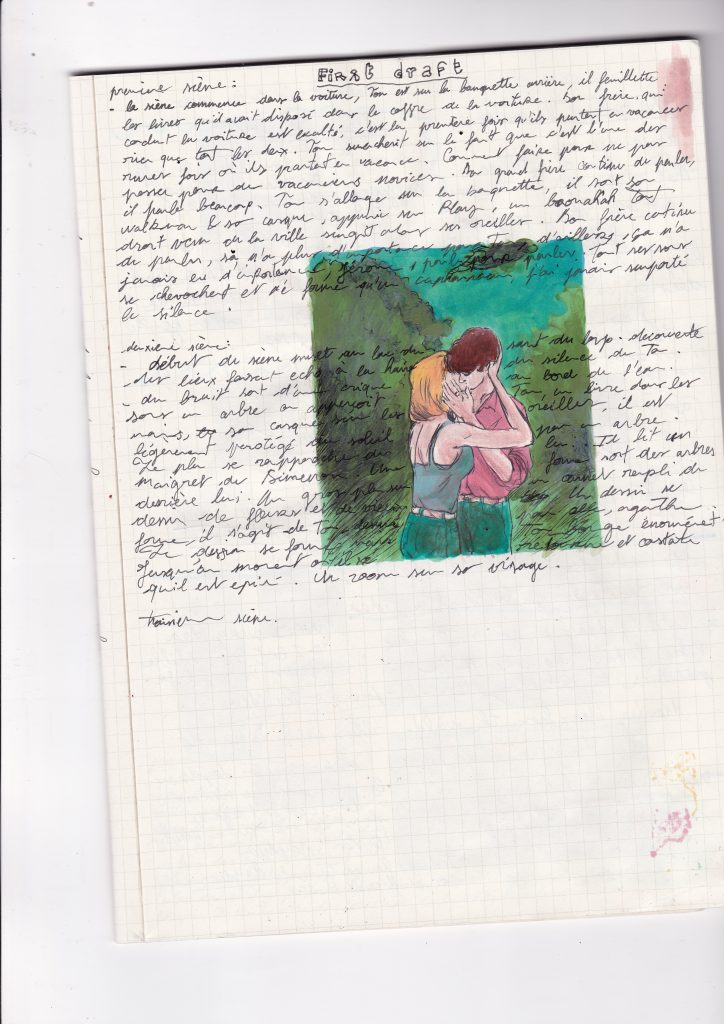 First draft
première scène:
- la scène commence dans la voiture, Tom est sur la banquette arrière, il feuillette
les livres qu'il avait disposé dans le coffre de la voiture. Son frère qui
conduit la voiture est exalté, c'est la première fois qu'ils partent en vacances
rien que tout les deux. Tom surenchérit sur le fait que c'est l'une des
rares fois où ils partent en vacance. Comment faire pour ne pas
passer pour de vacanciers novices. Son grand frère continue de parler,
il parle beaucoup. Tom s'allonge sur la banquette, il sort son
walkman & son casque, appuie sur Play, un tout
droit venu de la ville surgit dans ses oreilles. Son frère continue
de parler, ça n'a plus d'importance d'ailleurs, ça n'a
jamais eu d'importance parler. Tout ses sons
se chevauchent et ne forme qu'un j'ai jamais supporté
le silence.
deuxième scène:
- début de scène muet au lac du saut du loup. découverte
- des lieux faisant echo à la du silence de Tom
- du bruit sort d'une au bord de l'eau.
sous un arbre on apperçoit Tom un livre dans les
mains, son casque sur les oreilles, il est
légèrement protégé du soleil par un arbre.
Le plan se rapproche de lui. Il lit un
maigret de Simenon. Une forme sort des arbres
derrière lui. Un gros plan sur un carnet rempli de
dessin de fleurs et de Un dessin se
forme, il s'agit de Tom
Le dessin se forme
Jusqu'au moment où il se et constate
qu'il est epié. Un zoom sur son visage.
scène.